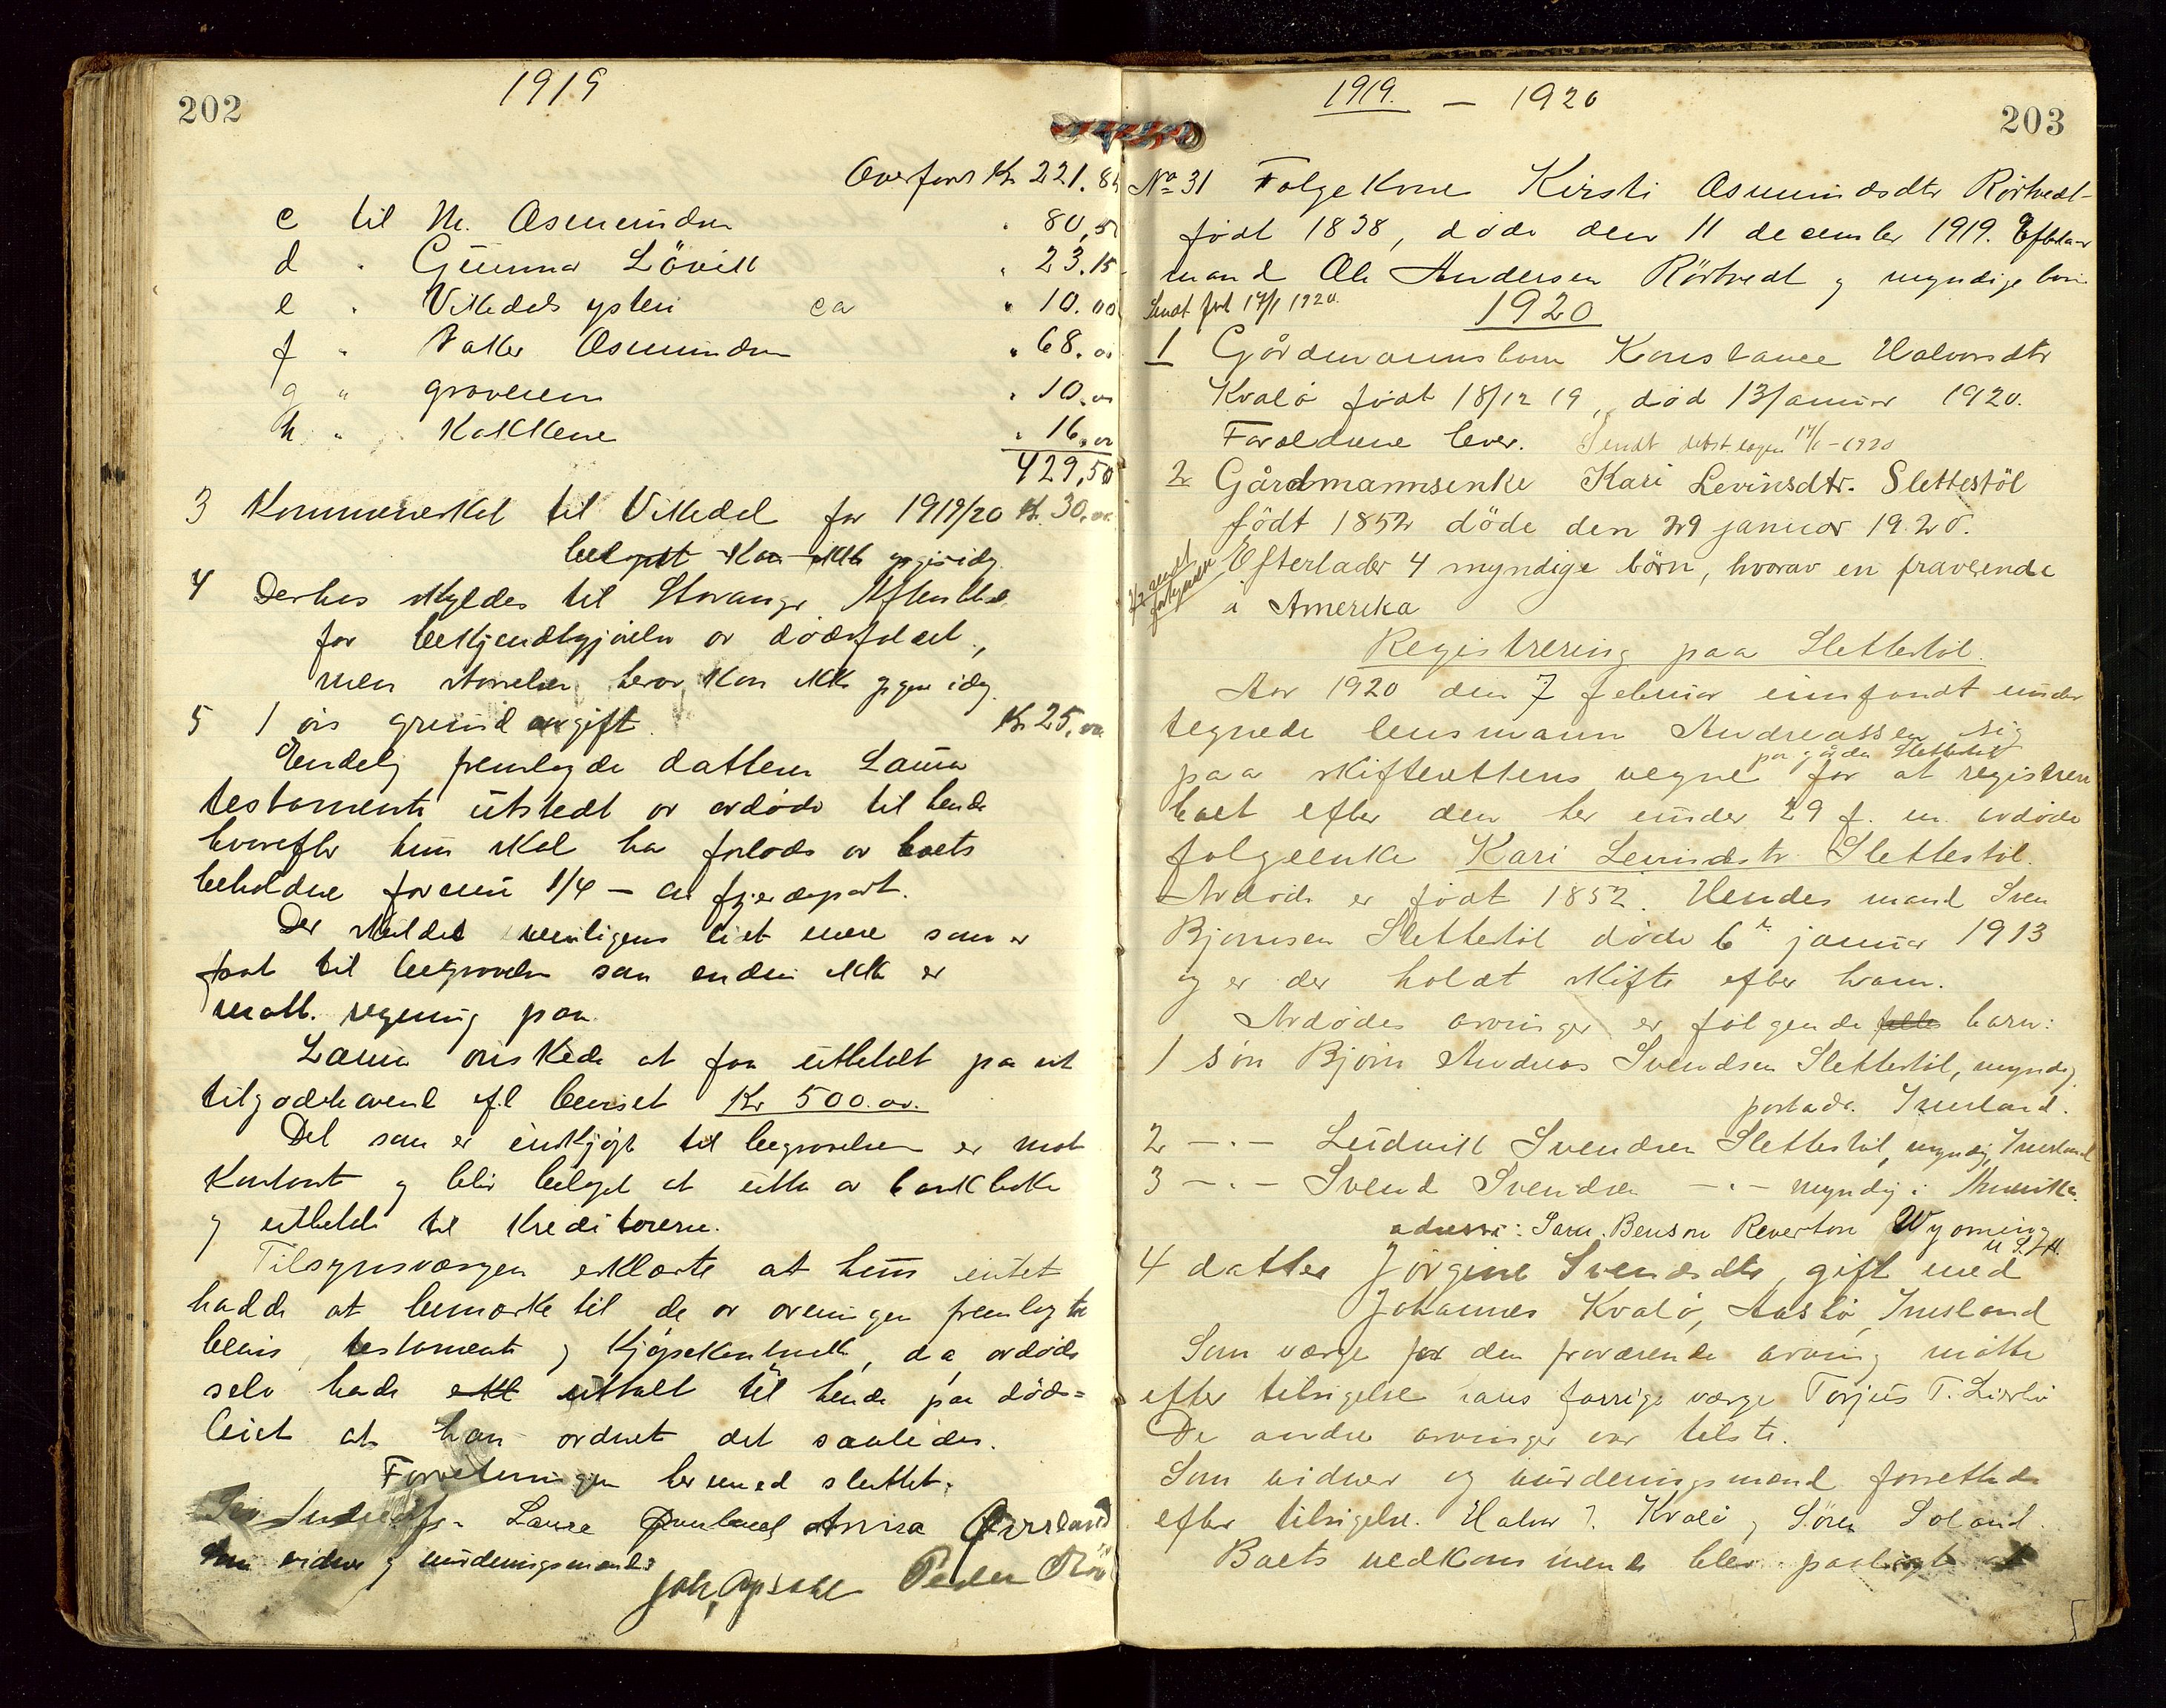 202
1919
Overført Kr 221.85
c til M. Asmundsen " 80,50
d " Gunnar Lövik " 23.15
e " Vikedals ysteri ca " 10.00
f " Asmundsen " 68.00
g " graveren " 10.00
h " Kokkene " 16.00
429,50
3 Kommuneskat til Vikedal for 1919/20 Kr. 30.00
belöpet kan ikke opgis idag.
4 Derhos skyldes til Stavanger Aftenblad
for bekjendtgjörelse av dödsfaldet,
men störrelsen herav kan ikke opgives idag.
5 1 års grundavgift Kr 25.00
Endelig fremlagde datteren Laura
testamente utstedt av avdöde til hende
hvorefter hun skal ha forlods av boets
beholdne formue 1/4 – en fjerdepart.
Der skyldes rimeligens litt mere som er
kjöpt til begravelsen som endnu ikke er
mott. regning paa.
Laura önskede at faa utbetalt sit
tilgodehavende efl beviset Kr 500.00.
Det som er indkjöpt til begravelsen er mot
Kontant og blir beløpet at utta av bankboken
og utbetale til Kreditorerne.
Tilsynsvergen erklærte at hun intet
hadde at bemerke til de av arvingen fremlagte
bevis, testamente og kjöpekontrakt, da avdöde
selv havde uttalt til hende paa död=
leiet at han ordnet det saaledes.
Forretningen hermed sluttet.
Laura Anna
Som vidner og vurderingsmænd:
Joh. Opsahl Peder
1919. – 1920
203
No 31 Folgekone Kirsti Asmundsdtr Rörtvedt
födt 1838, döde den 11 december 1919. Efterlater
mand Ole Andersen Rörtvedt og myndige barn
Sendt fort 17/1 1920.
1920
1 Gårdmannsbarn Konstance Halvorsdtr
Kvalö födt 18/12 19, död 13 januar 1920.
Forældrene lever. Sendt 17/1 – 1920
2 Gårdmannsenke Kari Levinsdtr. Slettestöl
födt 1852 döde den 29 januar 1920.
Efterlader 4 myndige börn, hvorav en fraverende
i Amerika
Registrering paa Slettestöl.
Aar 1920 den 7 februar innfandt under
tegnede lensmann Andreassen sig
paa skifterettens vegne paa gården Slettestöl for at registrere
boet efter den her under 29 f. m. avdöde
folgeenke Kari Levinsdtr Slettestöl.
Avdöde er födt 1852. Hendes mand Sven
Bjornsen Slettestöl döde 6te januar 1913
og er der holdt skifte efter ham.
Avdödes arvinger er fölgende barn:
1 sön Björn Andreas Svendsen Slettestöl, myndig
postadr. Imsland.
2 – " – Ludvik Svendsen Slettestöl, myndig, Imsland
3 – " – Svend Svendsen – " – myndig i Amerika.
adresse: Sam. Benson Reverton Wyoming
U.S.A.
4 datter Jörgine Svendsdtr, gift med
Johannes Kvalö, Imsland
Som værge for den fraværende arving mötte
efter tilsigelse hans forrige værge Torjus T.
De andre arvinger var tilste.
Som vidner og vurderingsmænd forrettede
efter tilsigelse Halvor J. Kvalö og Sören Soland.
Boets vedkommende blev paalagt at